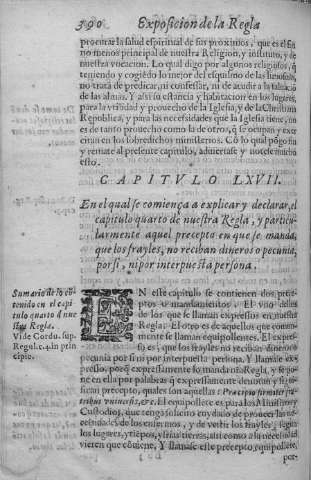 390 Exposicion de la Regla
procurar la salud espiritual de sus proximos, que es el fin
no menos principal de nuestra Religion, y instituto, y de
nuestra vocacion. Lo qual digo por algunos religiosos, q̃
teniendo y cogiẽdo lo mejor del esquilmo de las limosnas,
no trata de predicar, ni confessar, ni de acudir a la salud
de las almas. Y assi su estancia y habitacion en los lugares,
para la vtilidad y prouecho de la Iglesia, y de la Christiana
Republica, y para las necesidades que la Iglesia tiene, no
es de tanto prouecho como la de otros, q̃ se ocupan y exer
citan en los sobredichos ministerios. Cõ lo qual põgo fin
y remate al presente capitulo, aduiertase y notese mucho
esto.
CAPITVLO LXVII.
En el qual se comiença a explicar y declarar, el
capitulo quarto de nuestra Regla, y particu-
larmente aquel precepto en que se manda,
que los frayles, no reciban dineros o pecunia,
por si, ni por interpuesta persona.
Sumario de lo cõ
tenido en el capi
tulo quarto d nue
stra Regla.
Vide Cordu. sup.
Regul. c. 4. in prin
cipio.
EN este capitulo se contienen dos prece
ptos o mandamientos. El vno dellos es
de los que se llaman expressos en nuestra
Regla. El otro es de aquellos que comun
mente se llaman equipollentes. El expres-
so es, que los frayles no reciban dineros o
pecunia por si ni por interpuesta persona. Y llamase ex-
presso, porq̃ expressamente lo manda la Regla, y se po-
ne en ella por palabras q̃ expressamente denotan y signi-
fican precepto, quales son aquellas: Præcipio firmiter fra
tribus vniuersis, &c. El equipollente es para los Ministros y
Custodios, que tenga solicito cuydado de proueer las ne-
cessidades de los enfermos, y de vestir los frayles, segun
los lugares, y tiẽpos, y frias tierras, assi como a la necessidad
vieren que cõuiene. Y llamase este precepto, equipollente,
por-